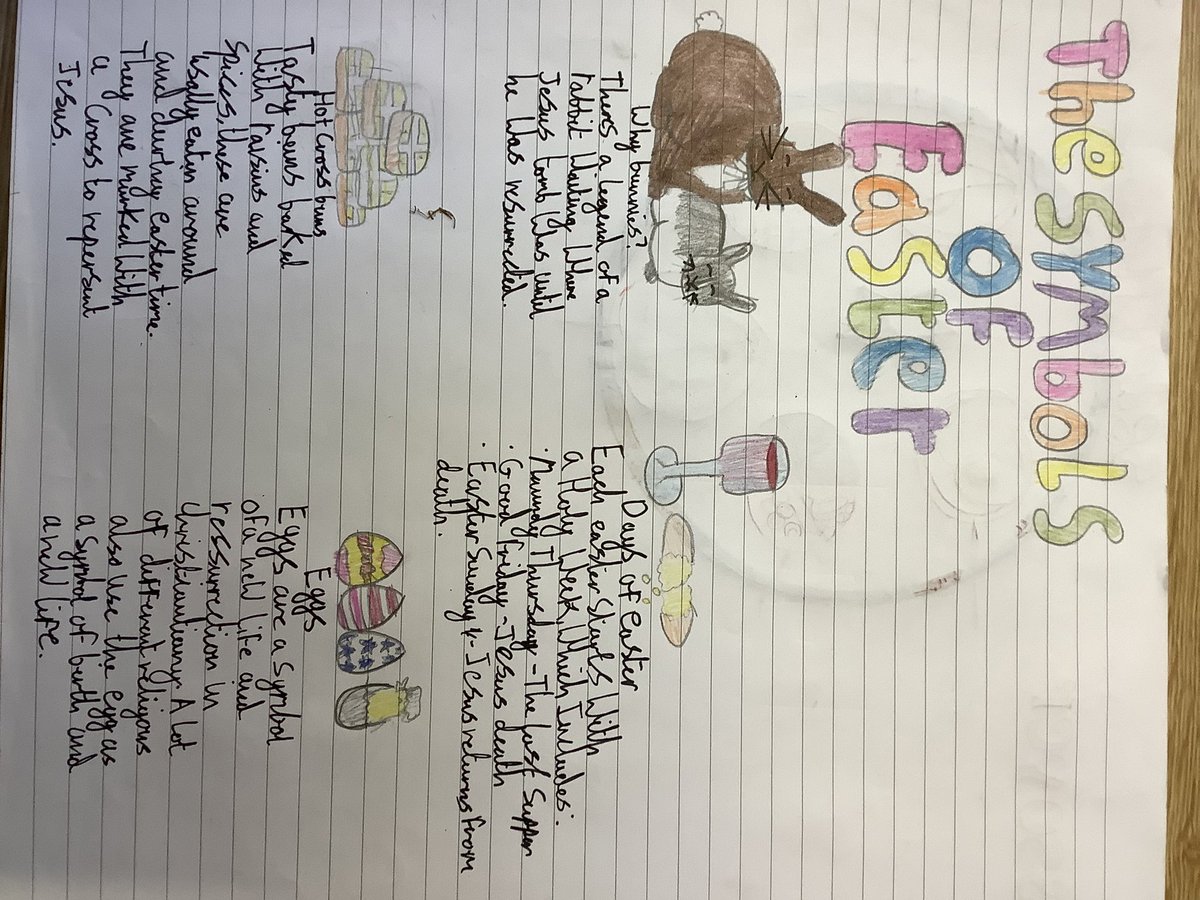 The Symbols
Of
Easter
Why bunnies?
Theres a legend of a
rabbit waiting where
Jesus tomb was until
he was resurrected.
Days of easter
Each easter starts with
a Holy week, which Includes:
· Maundy Thursday - The last supper
· Good friday - Jesus death
· Easter Sunday - Jesus returns from
death.
Hot cross buns
Tasty buns baked
with raisins and
spices, these are
usally eatin around
and during easter time.
They are marked with
a cross to repersent
Jesus.
Eggs
Eggs are a symbol
of a new life and
ressurection in
A lot
of different religons
also use the egg as
a symbol of birth and
a new life.